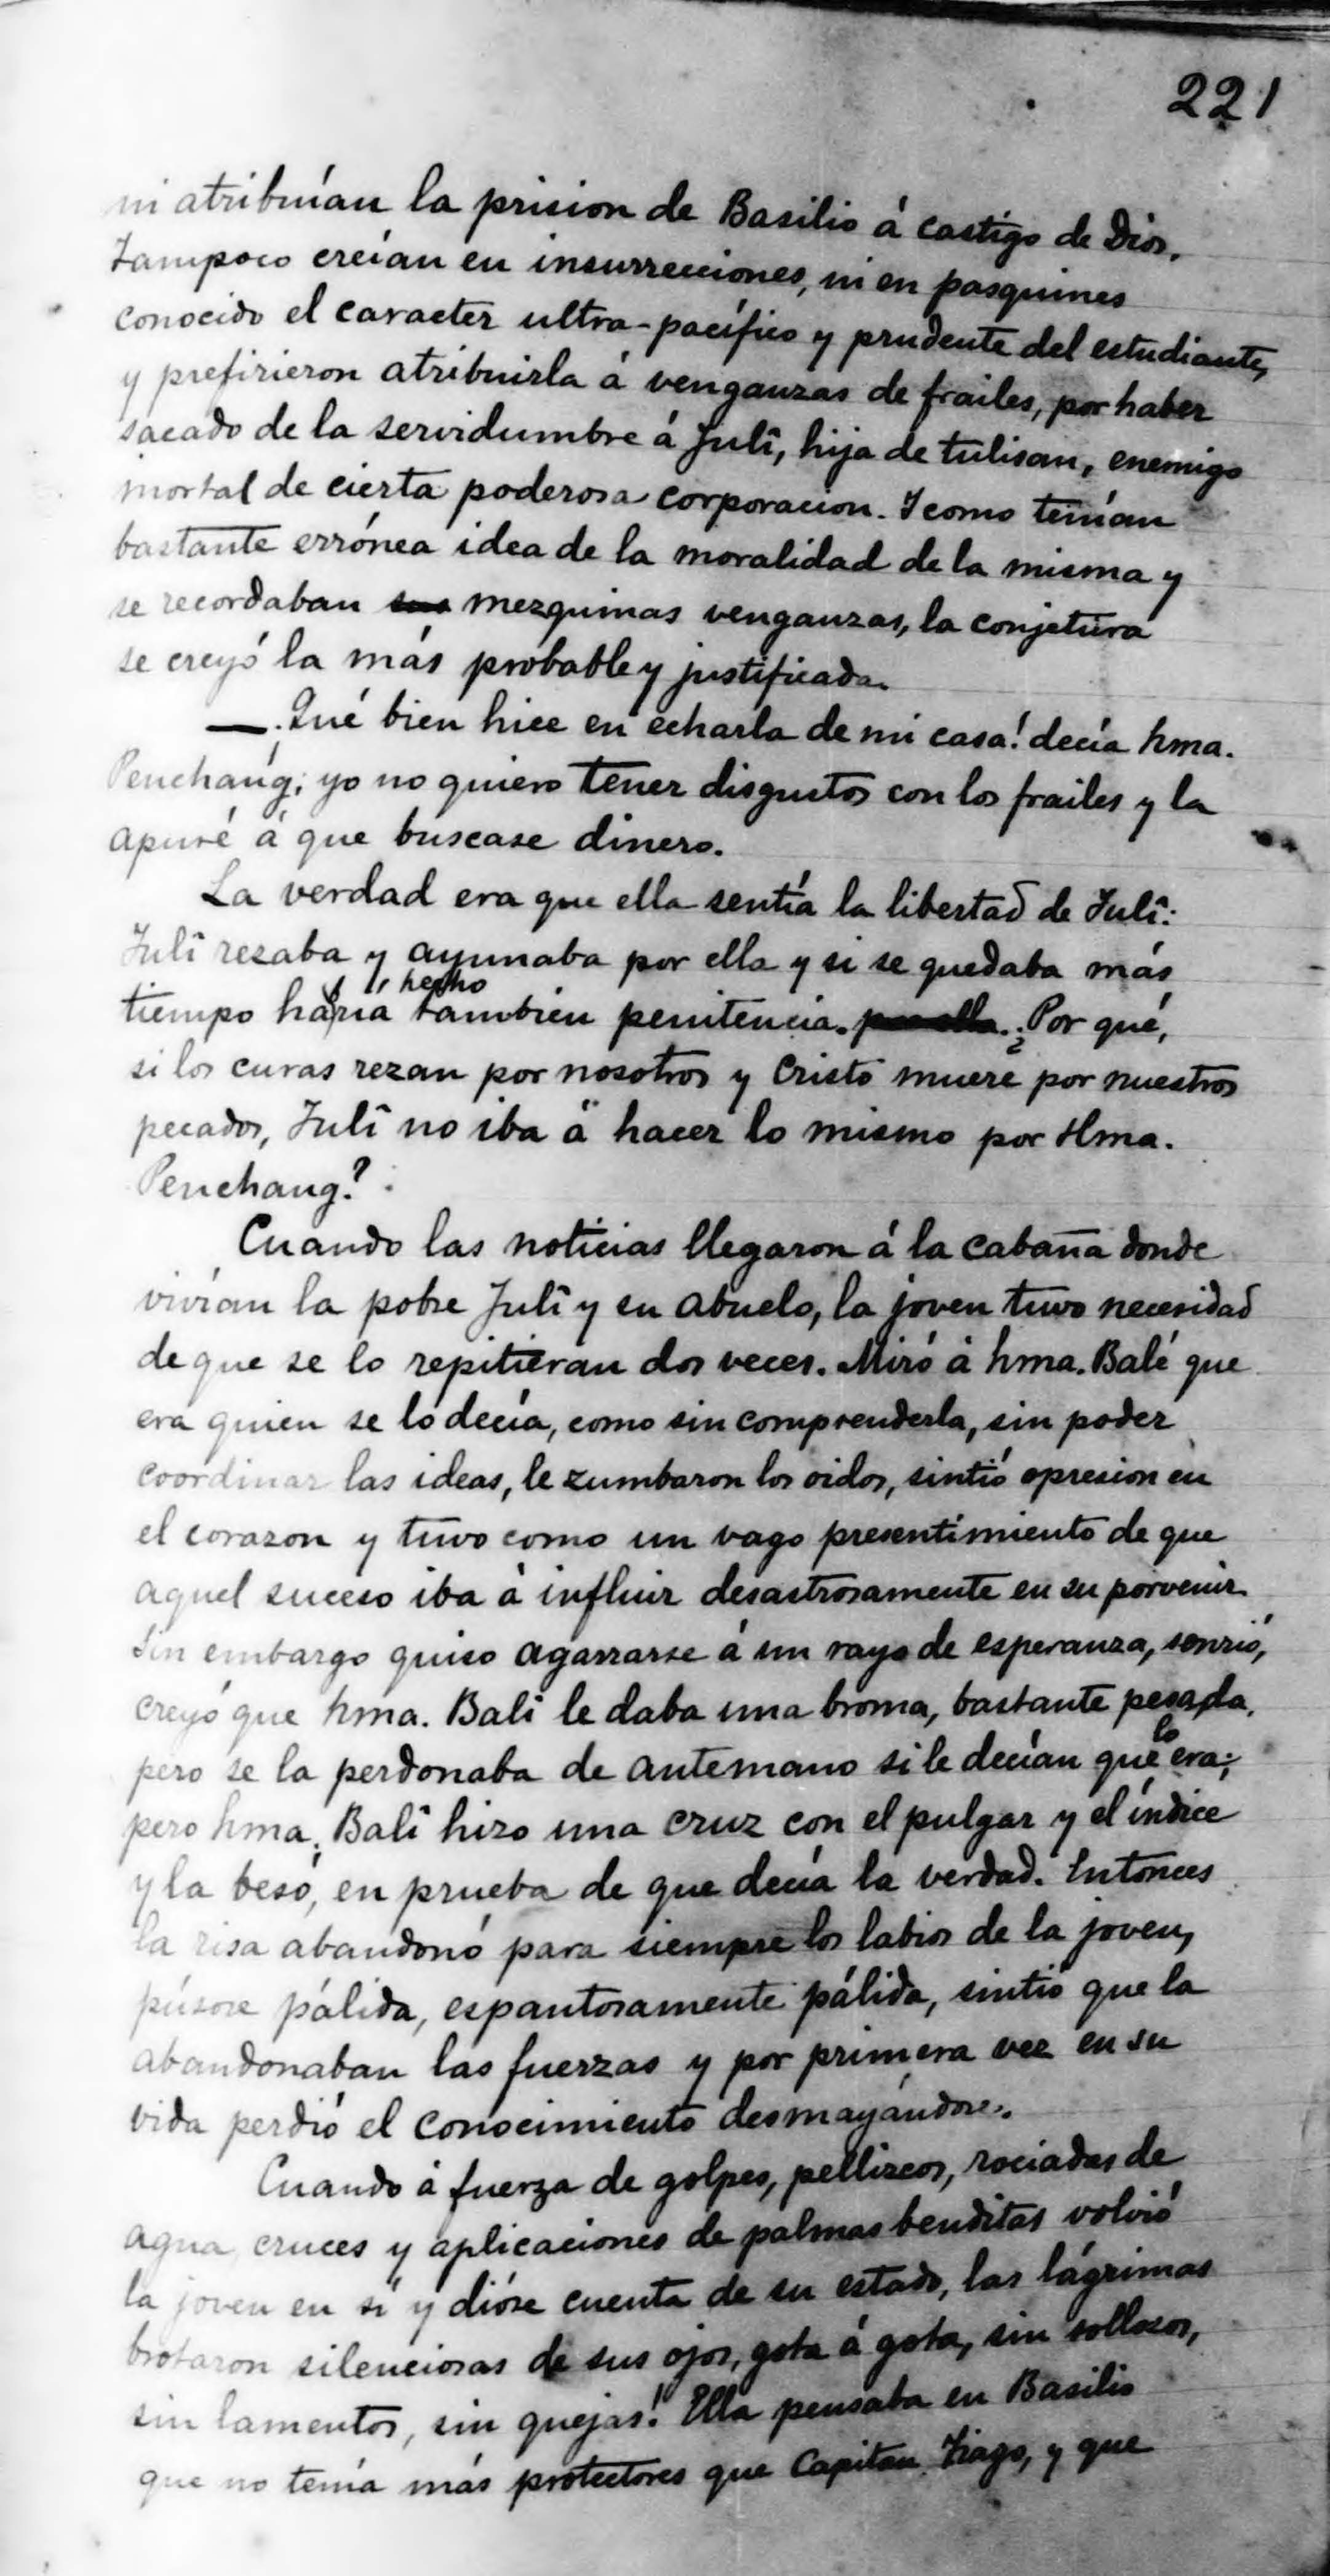 221
ni atribuían la prision de Basilio á castigo de Dios.
Tampoco creían en insurrecciones, ni en pasquines
conocido el caracter ultra-pacífico y prudente del estudiante,
y prefirieron atribuirla á venganzas de frailes, por haber
sacado de la servidumbre á Julî, hija de tulisan, enemigo
mortal de cierta poderosa corporacion. Y como tenían
bastante errónea idea de la moralidad de la misma y
se recordaban sus mezquinas venganzas, la conjetura
se creyó la más probable y justificada.
— ¡Qué bien hice en echarla de mi casa! decía hma.
Penchang; yo no quiero tener disgustos con los frailes y la
apuré á que buscase dinero.
La verdad era que ella sentía la libertad de Julî:
Julî rezaba y ayunaba por ella y si se quedaba más
hecho
tiempo haría tambien penitencia. por ella. ¿Por qué,
si los curas rezan por nosotros y Cristo muere por nuestros
pecados, Julî no iba á hacer lo mismo por Hma.
Penchang?
Cuando las noticias llegaron á la cabaña donde
vivían la pobre Julî y su abuelo, la joven tuvo necesidad
de que se lo repitieran dos veces. Miró á hma. Balé que
era quien se lo decía, como sin comprenderla, sin poder
coordinar las ideas, le zumbaron los oidos, sintió opresion en
el corazon y tuvo como un vago presentimiento de que
aquel suceso iba á influir desastrosamente en su porvenir.
Sin embargo quiso agarrarse á un rayo de esperanza, sonrió,
creyó que hma. Balî le daba una broma, bastante pesada,
lo
pero se la perdonaba de antemano si le decían que era;
pero hma. Balî hizo una cruz con el pulgar y el índice
y la besó, en prueba de que decía la verdad. Entonces
la risa abandonó para siempre los labios de la joven,
púsose pálida, espantosamente pálida, sintió que la
abandonaban las fuerzas y por primera vez en su
vida perdió el conocimiento desmayándose.
Cuando á fuerza de golpes, pellizcos, rociadas de
agua cruces y aplicaciones de palmas benditas volvió
la joven en sí y dióse cuenta de su estado, las lágrimas
brotaron silenciosas de sus ojos, gota á gota, sin sollozos,
sin lamentos, sin quejas! Ella pensaba en Basilio
que no tenía más protectores que Capitan Tiago, y que